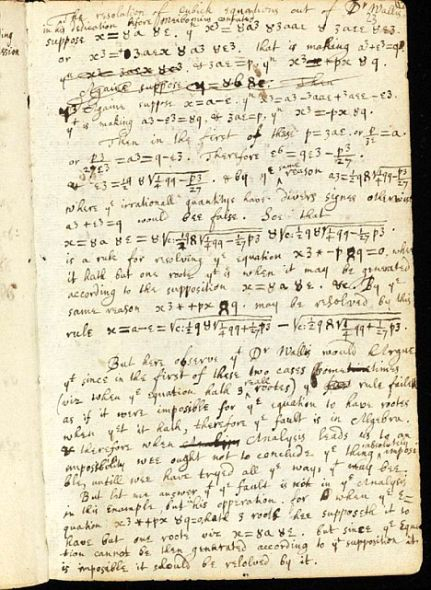 The resolution of Cubick equations out of Dr Wallis
in his dedication before
suppose x=8a8e. yn x3=8a383aae83aee8e3.
or x3=83aex8a38e3. that is making a3+e3=q
& 3ae=p. yn x3= px 8q.
Againe suppose x=a-e. yn x3=a3-3aae+3aee-e3.
yt is making a3-e3=8q. & 3ae=p. yn x3=-px8q.
Then in the first of these p=3ae. or p/3e=a.
or p3/27 =a3=q-e3. Therefore e6=qe3-p3/27.
& e3=½q8√¼qq-p3/27. & by ye same reason a3=½q8√¼qq-p3/27
where ye irrationall quantitys have divers signes otherwise
a3+e3=q would bee false. Soe that
x=8a8e=8√c:½q8√¼qq-1/27p3 8√c:½q8√¼qq-1/27p3.
is a rule for resolving ye equation x3*-p8q=0. when
it hath but one roote yt is when it may be generated
according to the supposition x=8a8e. &c. By ye
same reason x3*+px8q. may be resolved by this
rule x=a-e=√c:½q8√¼qq+1/27p3 - √c:½q8√¼qq+1/27p3.
But here observe yt Dr Wallis would Argue
yt since in the first of these two cases sometimes
(viz when ye equation hath 3 reall roots) ye rule failes
as if it were impossible for ye equation to have roots
when yet it hath, therefore ye fault is in Algebra.
& therefore when Analysis leads us to an
impossibility wee ought not to conclude ye thing absolutely impossi
ble, untill wee have tryed all ye ways yt may bee.
But let me answer yt ye fault is not in ye Analysis
in this Example, but his operation. for when ye E=
quation x3*+px8q=0 hath 3 roots hee supposeth it to
have but one roote viz x=8a8e. but since ye Equa
tion cannot be then generated according to yt supposition it
is impossible it should be resolved by it.